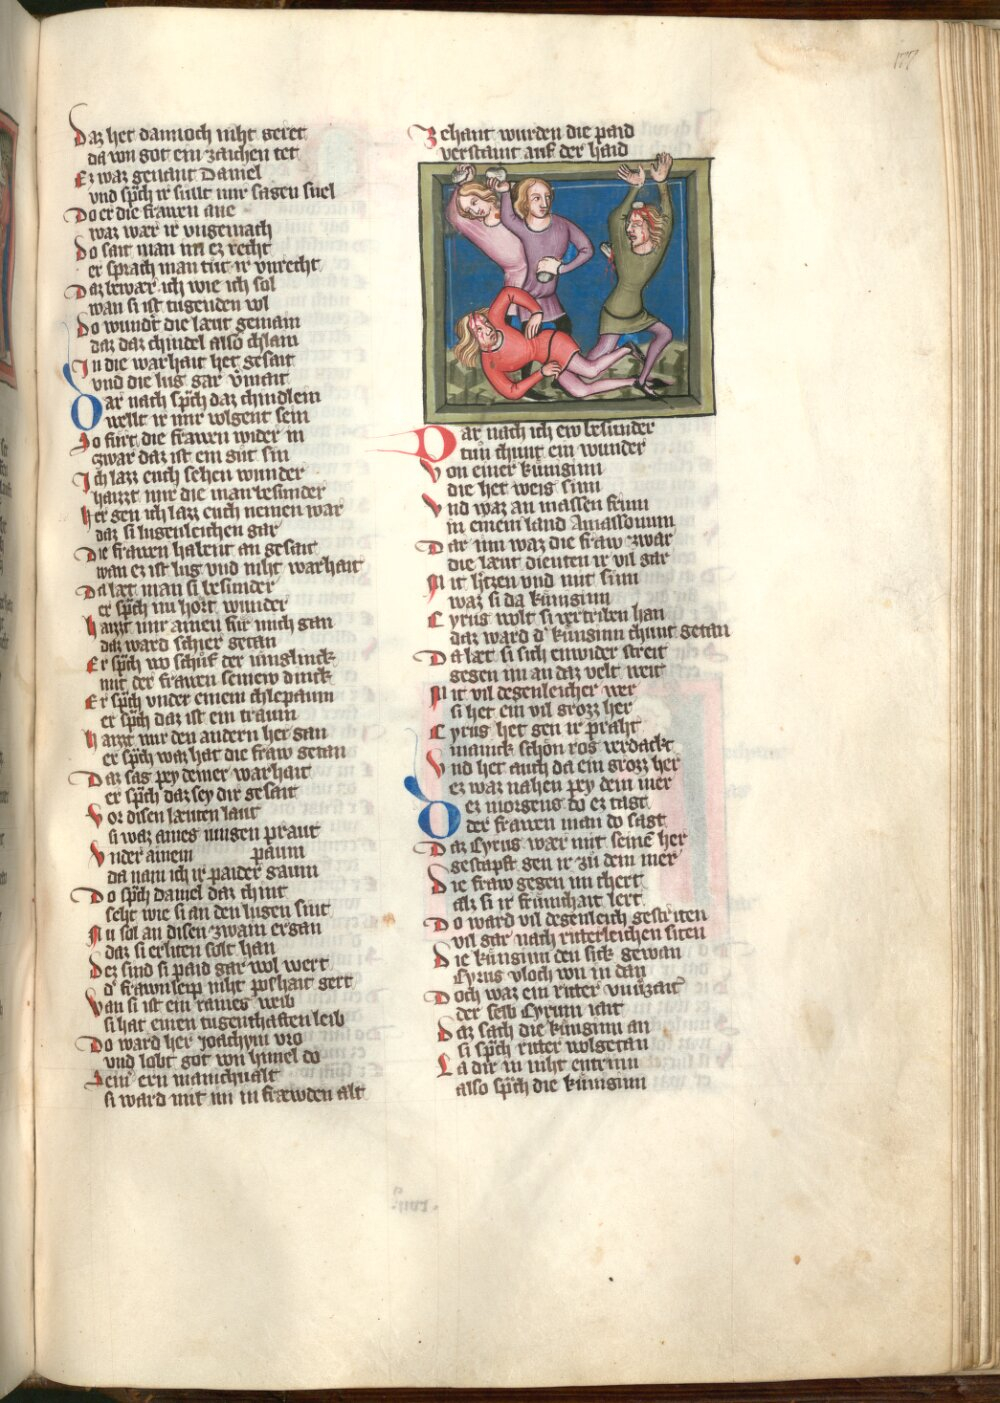 Daz het dannoch niht geret
da von got ein zaichen tet
Er waz genant Daniel
vnd sp̄ch ir sült mir sagen snel
Do er die frawen ane
waz wær ir vngemach
Do sait man im ez recht
er sprach man tůt ir vnrecht
Daz bewær ich wie ich sol
wan si ist tugenden vol
Do wundt die læut gemain
daz daz chindel also chlain
In die warhait het gesait
vnd die lug gar v̄mait
Dar nach sp̄ch daz chindlein
wellt ir mir volgent sein
So fůrt die frawen wider in
zwar daz ist ein gůt sin
Ich lazz euch sehen wunder
haizzt mir die man besunder
her gen ich lazz euch nemen war
daz si lugenleichen gar
Die frawen habent an gesait
wan ez ist lug vnd niht warhait
Da læt man si besunder
er sp̄ch nu hört wunder
haizzt mir ainen für mich gan
daz ward schier getan
Er sp̄ch wo schůf der iunglinck
mit der frawen seinew dinck
Er sp̄ch vnder einem chlepaum
er sp̄ch daz ist ein traum
haizzt mir den andern her gan
er sp̄ch waz hat die fraw getan
Daz sag pey deiner warhait
er sp̄ch daz sey dir gesait
Vor disen læuten laut
si waz aines iungen praut
Vnder ainem paum
da nam ich ir paider gaum
Do sp̄ch Daniel daz chint
seht wie si an den lugen sint
Nu sol an disen zwain ergan
daz si erliten solt han
Dez sind si paid gar wol wert
d' frawn leip niht poshait gert
Wan si ist ein raines weib
si hat einen tugenthaften leib
Do ward her Joachym vro
vnd lobt got von himel do
Sein' ern manichualt
si ward mit im in fræwden alt
Zehant wurden die paid
verstaint auf der haid
Dar nach ich ew besunder
tun chunt ein wunder
Von einer küniginn
die het weis sinn
Vnd waz an massen frum
in einem land Amassonum
Dar inn waz die fraw zwar
die læut dienten ir vil gar
Mit witzen vnd mit sinn
waz si da küniginn
Cyrus wolt si vertriben han
daz ward d' künginn chunt getan
Da læt si sich enwider streit
gegen im an daz velt weit
Mit vil degenleicher wer
si het ein vil grozz her
Cyrus het gen ir praht
manick schön ros verdackt
Vnd het auch da ein grozz her
ez waz nahen pey dem mer
Dez morgens do ez tagt
der frawen man do sagt
Daz Cyrus wær mit seinē her
gestapft gen ir zů dem mer
Die fraw gegen im chert
alz si ir frümchait lert
Do ward vil degenleich gestriten
vil gar nach ritterleichen siten
Die künginn den sick gewan
Cyrus vloch von in dan
Doch waz ein ritter vnuerzait
der selb Cyrum iait
Daz sach die künginn an
si sp̄ch ritter wolgetan
La dir in niht entrinn
also sp̄ch die küniginn